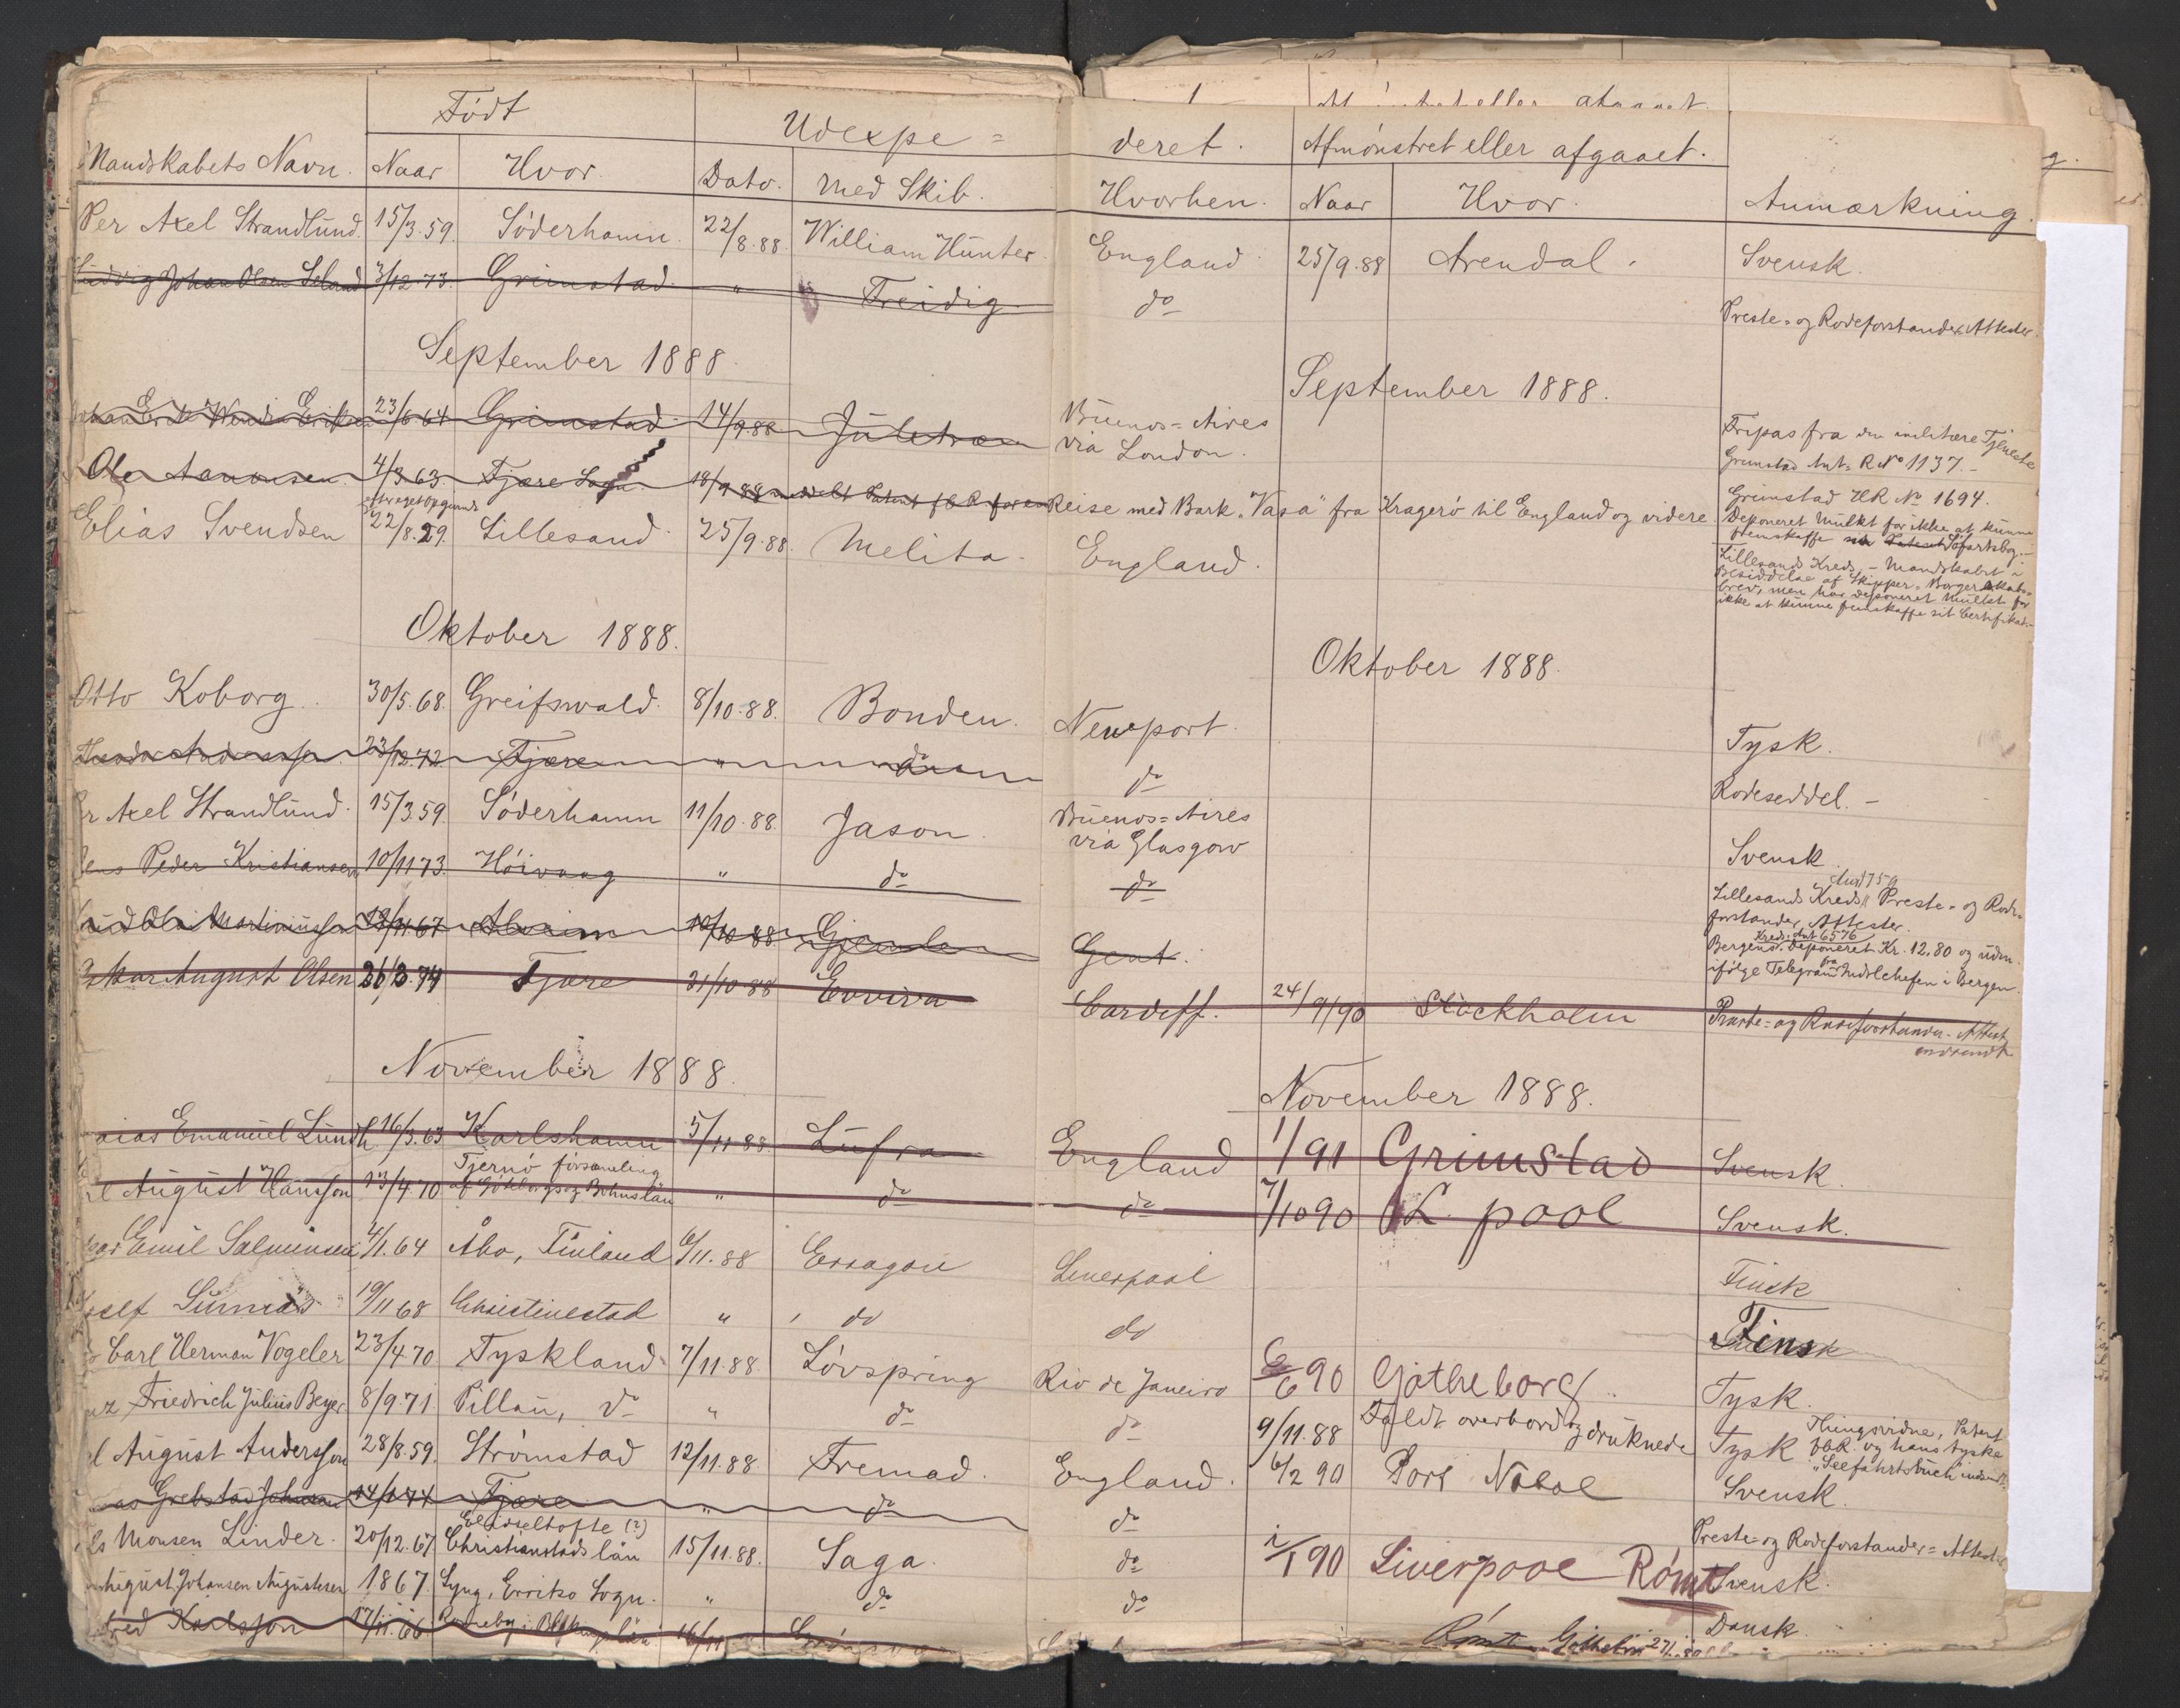 Født
Udexpe =
Mandskabets Navn. Naar Hvor. Dato. Med Skib.
Per Axel Strandlund. 15/3.59. Söderhamn. 22/8.88. William Hunter.
Ludvig Johan Olsen Seland 3/12.73. Grimstad. " Freidig
September 1888.
23/6.64 Grimstad 14/9.88 Juletræ
Ole Aanonsen. 4/3.63. Fjære Sogn. 18/9.88 meddelt Patent
Elias Svendsen 22/8.29. Lillesand. 25/9.88. Melita.
Oktober 1888.
Otto Koborg. 30/5.68. Greifswald. 8/10.88. Bonden.
23/12.72 Fjære " do
Axel Strandlund. 15/3.59. Söderhamn 11/10.88. Jason.
Jens Peder Kristiansen 10/11 73. Höivaag " do
Martiniussen 67 10/10 88 Gjemle
Oskar August Olsen 74 Fjære 21/10.88 Evviva
November 1888.
Emanuel Lundh. 16/3.63 Karlshamn 5/11.88. Lufra
August Hansson 13/4.70 Tjernö församling af Göteborgs og Bohuslän " do
Emil Salminen 4/1.64 Åbo, Finland 6/11.88 Erragon
19/11 68 Christinestad " do
Carl Herman Vogeler 23/4.70 Tyskland. 7/11.88. Løvspring
Friedrich Julius Beyer 8/9.71. Pillau, do " do
August Andersson 28/8.59. Strømstad 12/11.88. Fremad.
Grebstad Johnsen 14/1 74 Fjære " do
Monsen Linder. 20/12.67. (?) Christianstads län 15/11.88. Saga.
August Johansen Augustesen 1867. Lyng, Erritsø Sogn. " do
Karlsson 17/11.66 Rödeby i Blekinge län 16/11
deret. Afmønstret eller afgaaet.
Hvorhen. Naar Hvor. Anmærkning.
England. 25/9.88 Arendal. Svensk.
do Preste- og Rodeforstander Attester.
September 1888.
Buenos-Aires via London. Fripas fra den militære Tjeneste
Grimstad Ant. R No 1137.
Reise med Bark "Vasa" fra Kragerö til England og videre Grimstad HR No 1694.
Deponeret Mulkt for ikke at kunne fremskaffe Søfartsbog.
England. Lillesands Kreds, - Mandskabet i Besiddelse af Skipper-Borgerskabsbrev, men har deponeret Mulkt for ikke at kunne fremskaffe sit Certifikat.
Oktober 1888.
Newport. Tysk.
do Rodeseddel. -
Buenos-Aires via Glasgow Svensk.
do Lillesands Kreds Preste- og Rodeforstander Attester.
Gent. Bergens Kreds. Ant 6576 Deponeret Kr. 12.80 og ifølge Telegram fra Indrlchefen i Bergen.
Cardiff. 24/9/90 Stockholm Preste- og Rodeforstander-Attest
November 1888.
England 1/91 Grimstad Svensk.
do 7/10 90 L. pool Svensk.
Liverpool Finsk
do Finsk
Rio de Janeiro 6/6 90 Gøtheborg Tysk.
do 9/11.88 Faldt overbord og druknede Tysk Thingsvidne, Patent og hans tyske "Seefahrtsbuch"
England. 6/2 90 Port Natal Svensk.
do Preste- og Rodeforstander-Attester
do 90 Liverpool Rømt Svensk.
do Dansk.
Rømt